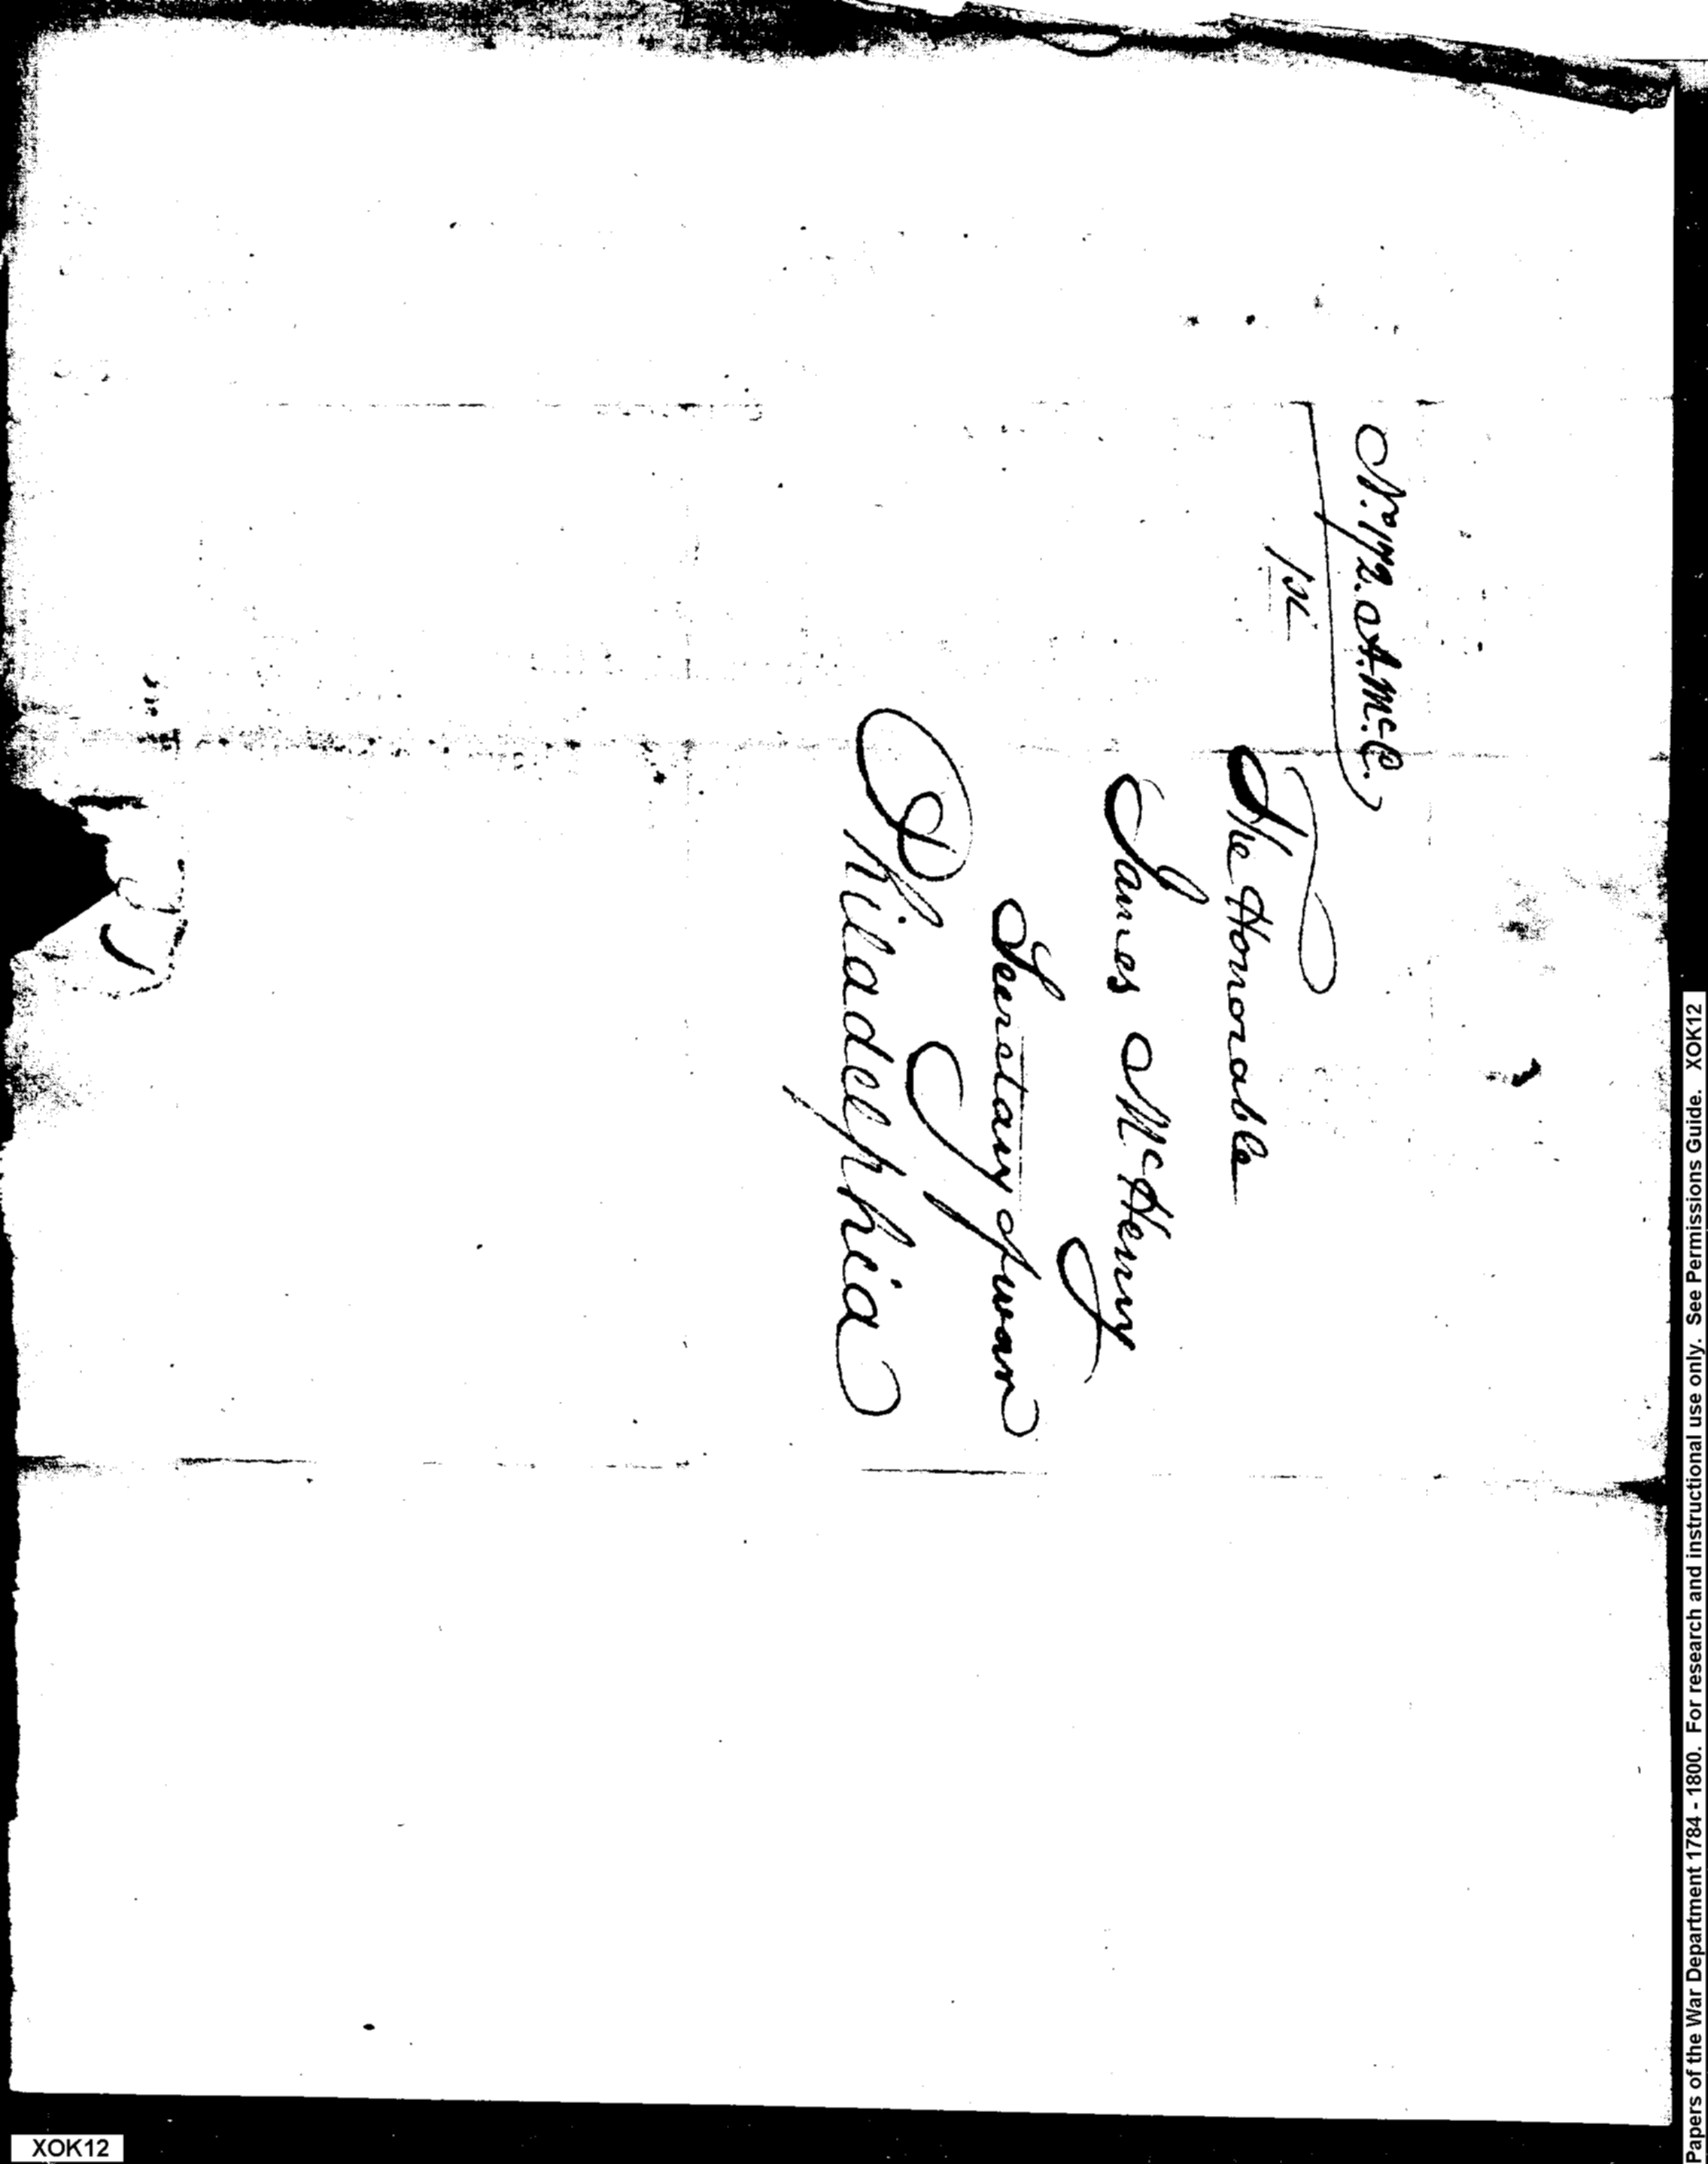 No. 172. A. McC.
The Honorable
James McHenry
Secretary of war
Philadelphia
XOK12
Papers of the War Department 1784 - 1800. For research and instructional use only. See Permissions Guide. XOK12